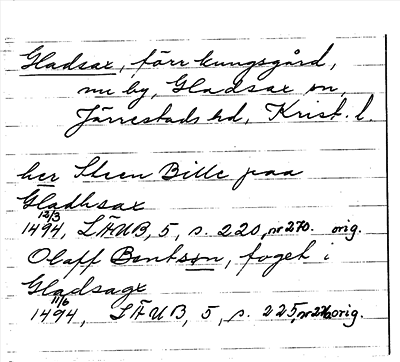 Gladsax, förr kungsgård,
nu by, Gladsax sn,
Järrestads hd, Krist. l.
her Steen Bille paa
Gladhsax
12/3
1494, LÄUB, 5, s. 220, nr 270. orig.
Olaff Bentson, foget i
Gladsagx
11/6
1494, LÄUB, 5, s. 225, nr 276 orig.